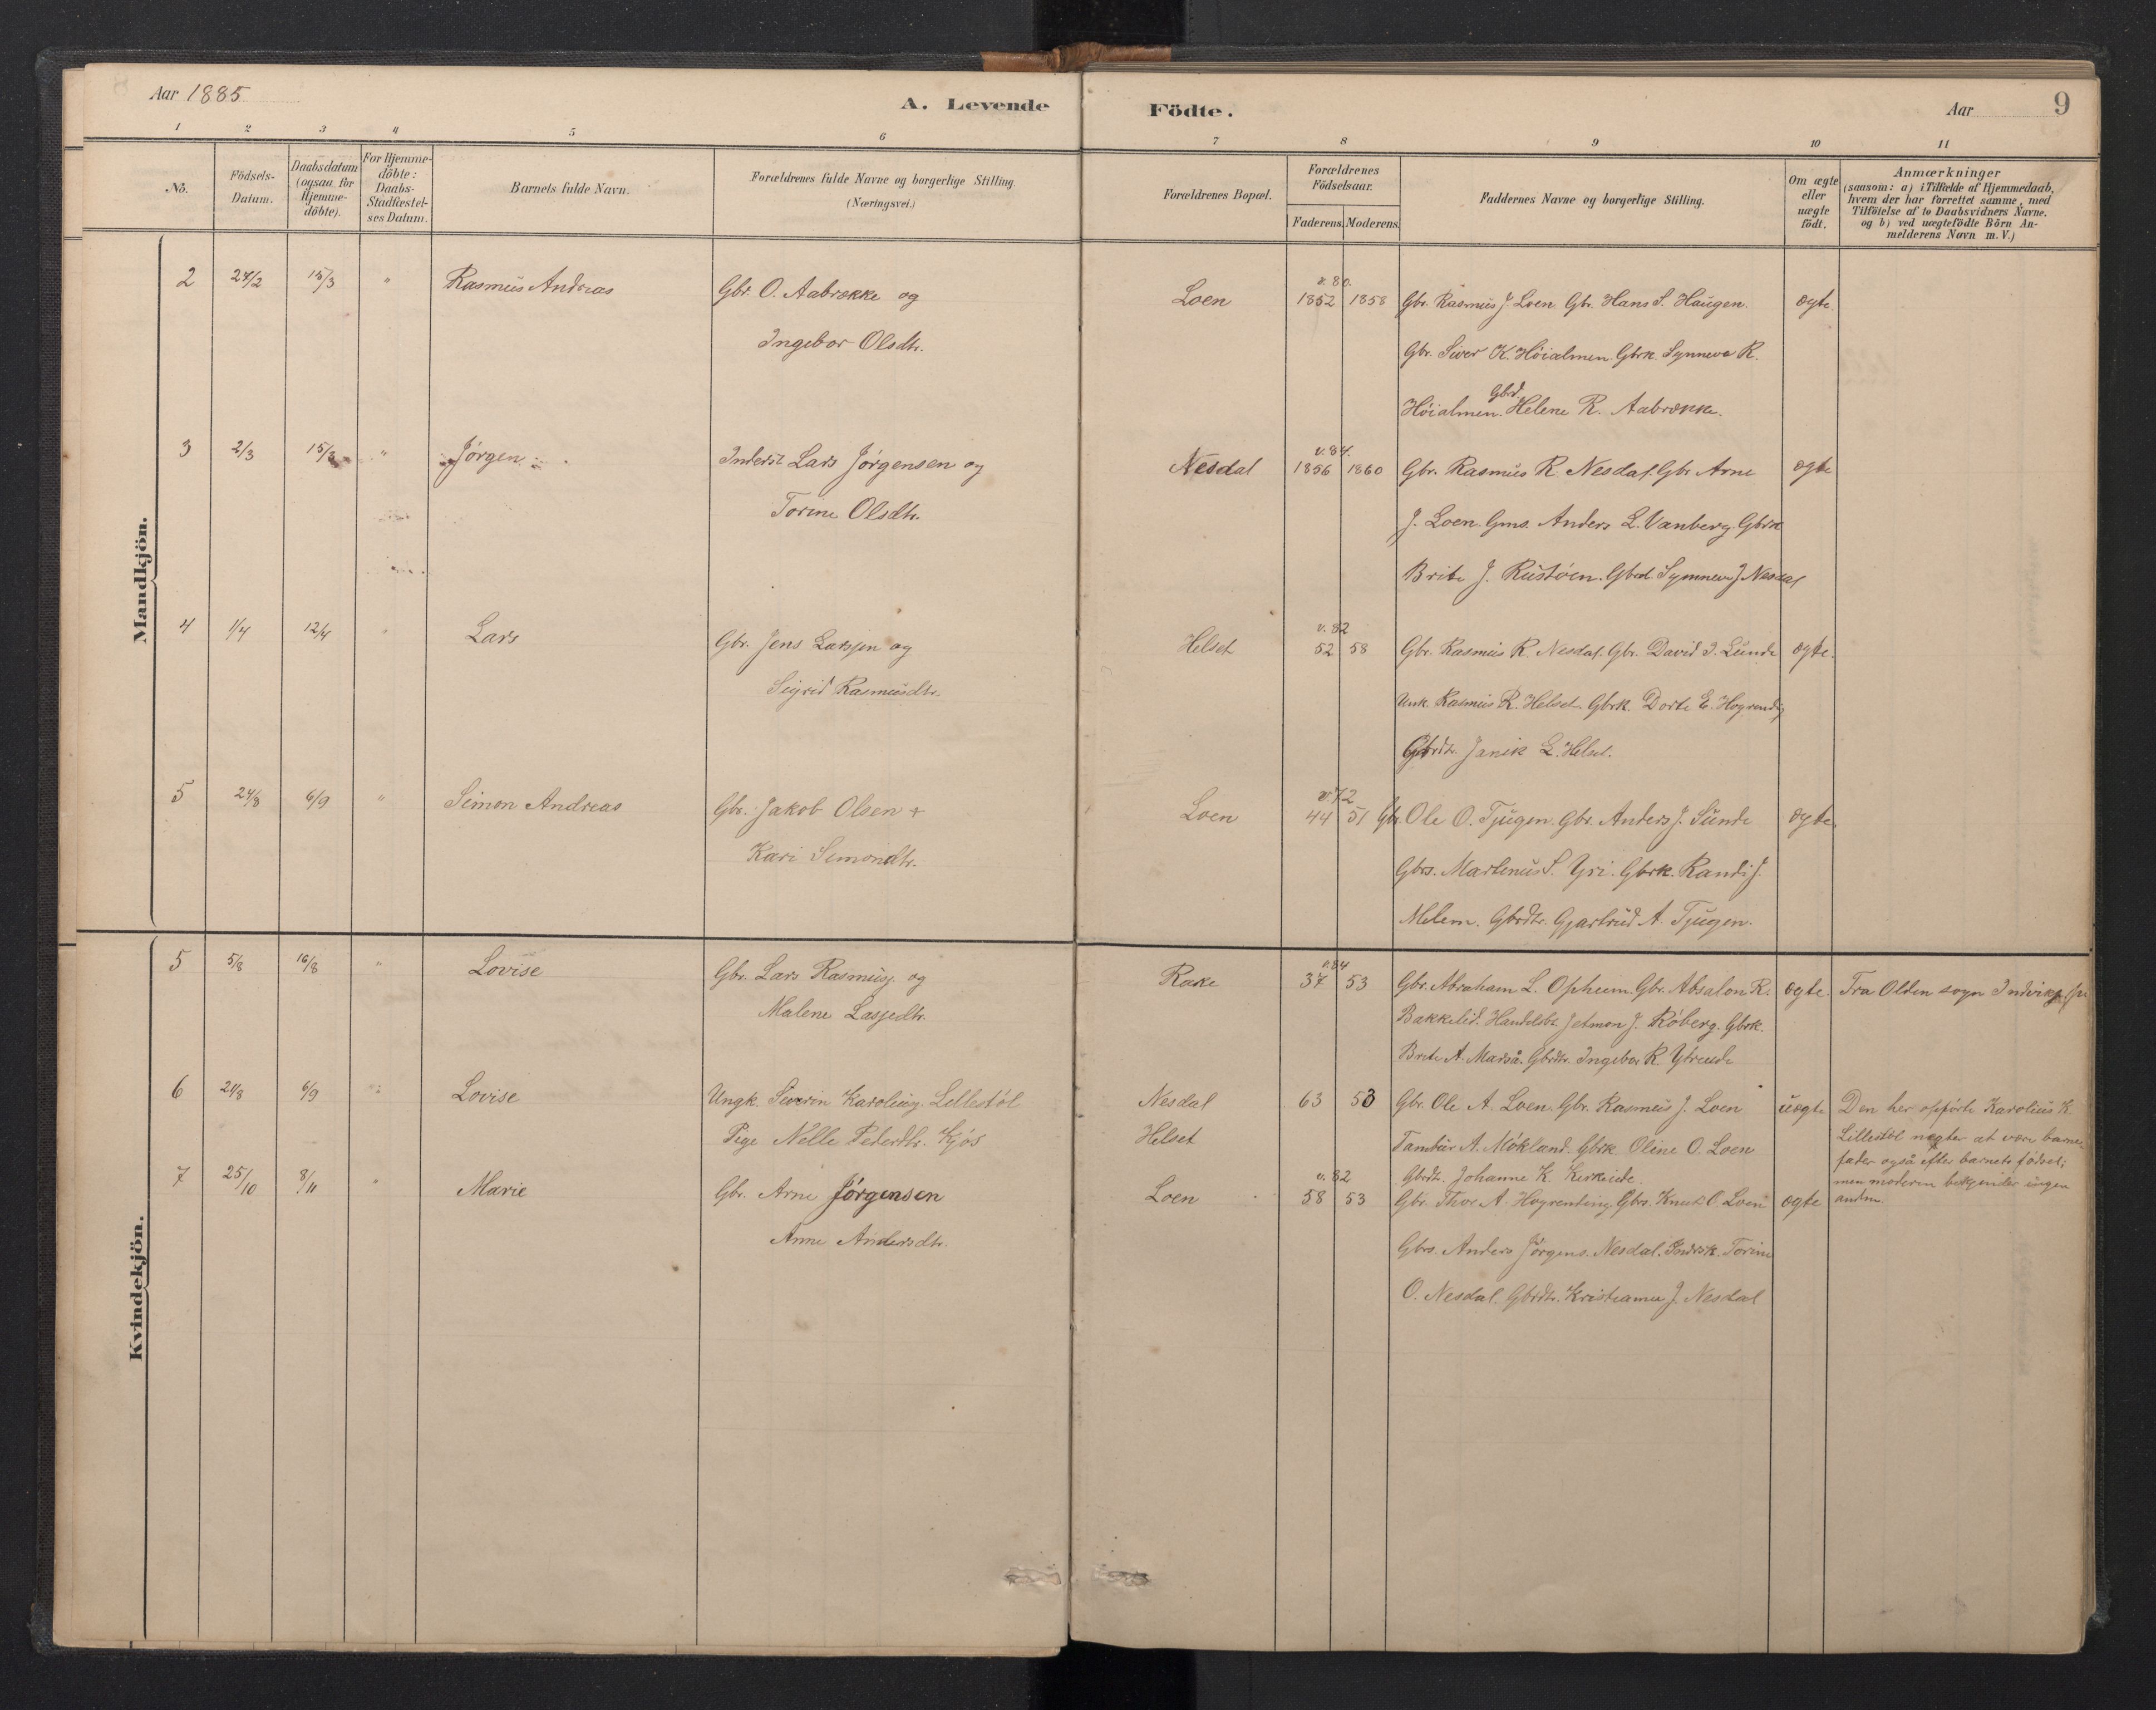 Aar 1885
A. Levende Födte.
Aar
9
1 2 3 4 5 6 7 8 9 10 11
No.
Födsels-
Datum.
Daabsdatum
(ogsaa for
Hjemme-
döbte).
For Hjemme-
döbte:
Daabs-
Stadfæstel-
ses Datum.
Barnets fulde Navn.
Forældrenes fulde Navne og borgerlige Stilling
(Næringsvei.)
Forældrenes Bopæl.
Forældrenes
Födselsaar.
Faderens. Moderens.
Faddernes Navne og borgerlige Stilling.
Om ægte
eller
uægte
födt.
Anmærkninger
(saasom: a) i Tilfælde af Hjemmedaab,
hvem der har forrettet samme, med
Tilföielse af to Daabsvidners Navne.
og b) ved uægtefödte Börn An-
melderens Navn m. V.)
Mandkjön.
v. 80.
2 27/2 15/3 " Rasmus Andreas Gbr. O. Aabrække og Loen 1852 1858 Gbr. Rasmus J. Loen Gbr. Hans S. Haugen. ægte.
Ingebor Olsdtr. Gbr. Siver K. Höialmen. Gbrk. Synneva R.
Gbrd.
Höialmen. Helene R. Aabrække.
v. 84.
3 2/3 15/3 " Jörgen Inderst Lars Jörgensen og Nesdal 1856 1860 Gbr. Rasmus R. Nesdal. Gbr. Arne ægte
Torine Olsdtr. J. Loen. Gms. Anders L. Vanberg. Gbrk
Brite J. Rustöen. Gbrd. Synneva J. Nesdal
v. 82
4 1/4 12/4 " Lars Gbr. Jens Larssen og Helset 52 58 Gbr. Rasmus R. Nesdal. Gbr. David I. Sunde ægte.
Sigrid Rasmusdtr. Unk. Rasmus R. Helset. Gbrk. Dorte E. Hogrending
Gbrdtr. Janik L. Helset.
v. 72
5 24/8 6/9 " Simon Andreas Gbr. Jakob Olsen + Loen 44 51 Gbr. Ole O. Tjugen. Gbr. Anders J. Sunde ægte.
Kari Simondtr. Gbrs. Martenus S. Yri. Gbrk. Randi J.
Melem. Gbrdtr. Gjartrud A. Tjugen.
Kvindekjön.
v. 84
5 5/8 16/8 " Lovise Gbr. Lars Rasmuss. og Rake 37 53 Gbr. Abraham L. Opheim. Gbr. Absalon R. ægte. Fra Olden sogn Indvik
Malene Lassedtr. Bakkelid. Handelsbr. Jetmon J. Röberg. Gbrk.
Brite A. Marså. Gbrdtr. Ingebor R.
6 24/8 6/9 " Lovise Ungk. Siverin Karolius. Lillestöl Nesdal 63 53 Gbr. Ole A. Loen. Gbr. Rasmus J. Loen uægte Den her opförte Karolius K.
Pige Nelle Pedersdtr. Kjös Helset Tambur A. Mökland. Gbrk. Oline O. Loen Lillestöl nægter at være barne-
Gbrdtr. Johanne K. Kirkeide. fader også efter barnets födsel;
men moderen bekjender ingen
anden.
v. 82
7 25/10 8/11 " Marie Gbr. Arne Jörgensen Loen 58 53 Gbr. Thor A. Hogrending. Gbrs. Knut O. Loen ægte
Anne Andersdtr. Gbrs. Anders Jörgens. Nesdal. Indrsk. Torine
O. Nesdal. Gbrdtr. Kristianna J. Nesdal